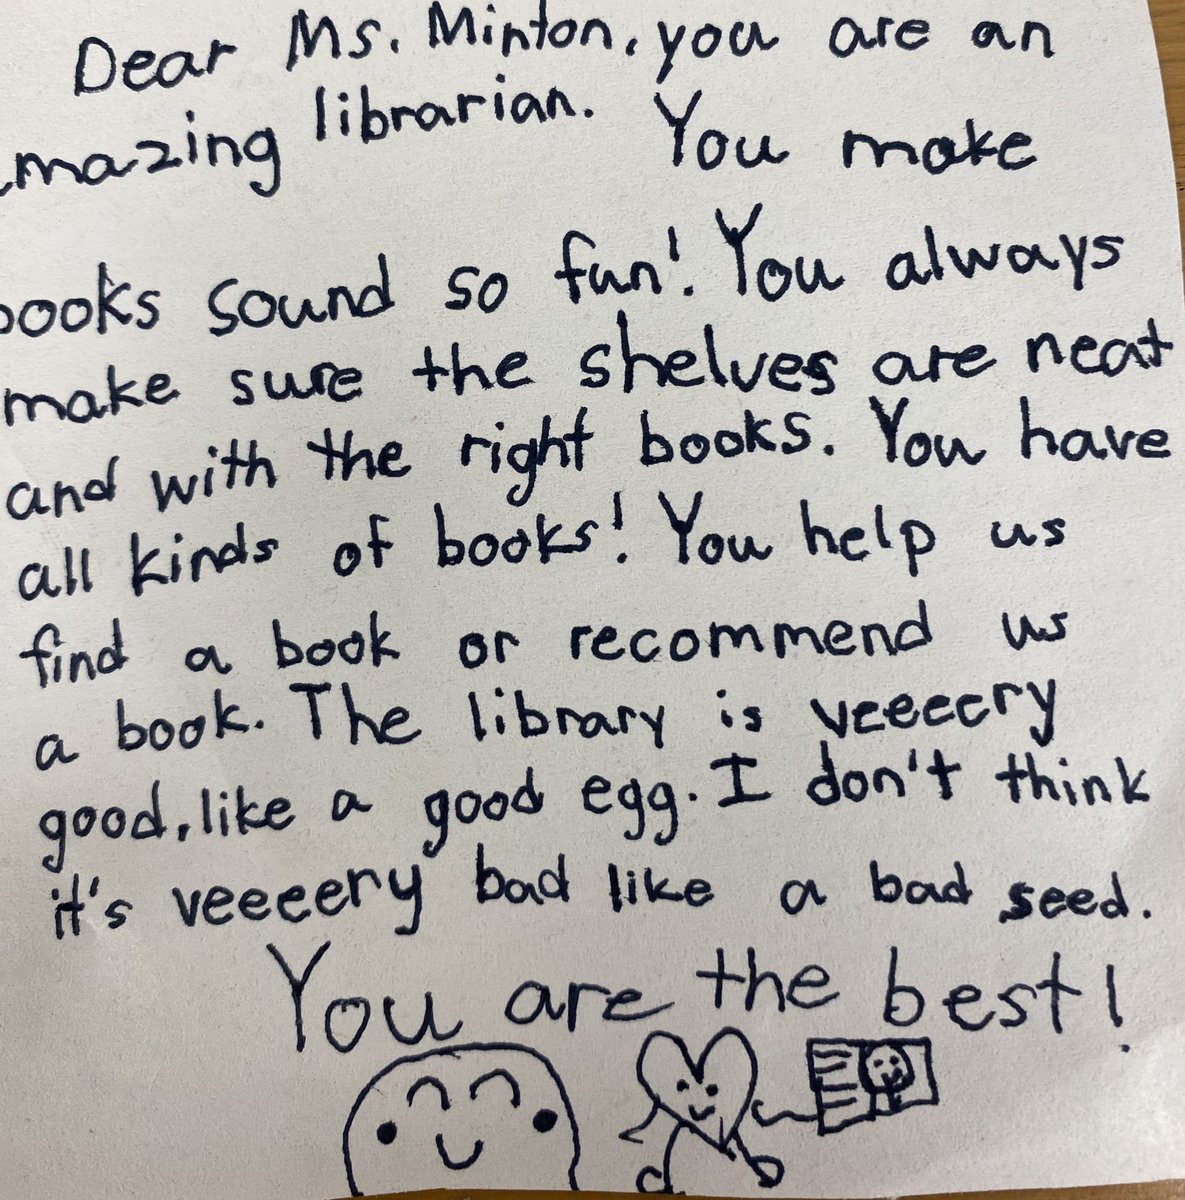 Dear Ms. Minton, you are an
amazing librarian. You make
books sound so fun! You always
make sure the shelves are neat
and with the right books. You have
all kinds of books! You help us
find a book or recommend us
a book. The library is veeeery
good, like a good egg. I don't think
it's veeeery bad like a bad seed.
You are the best!